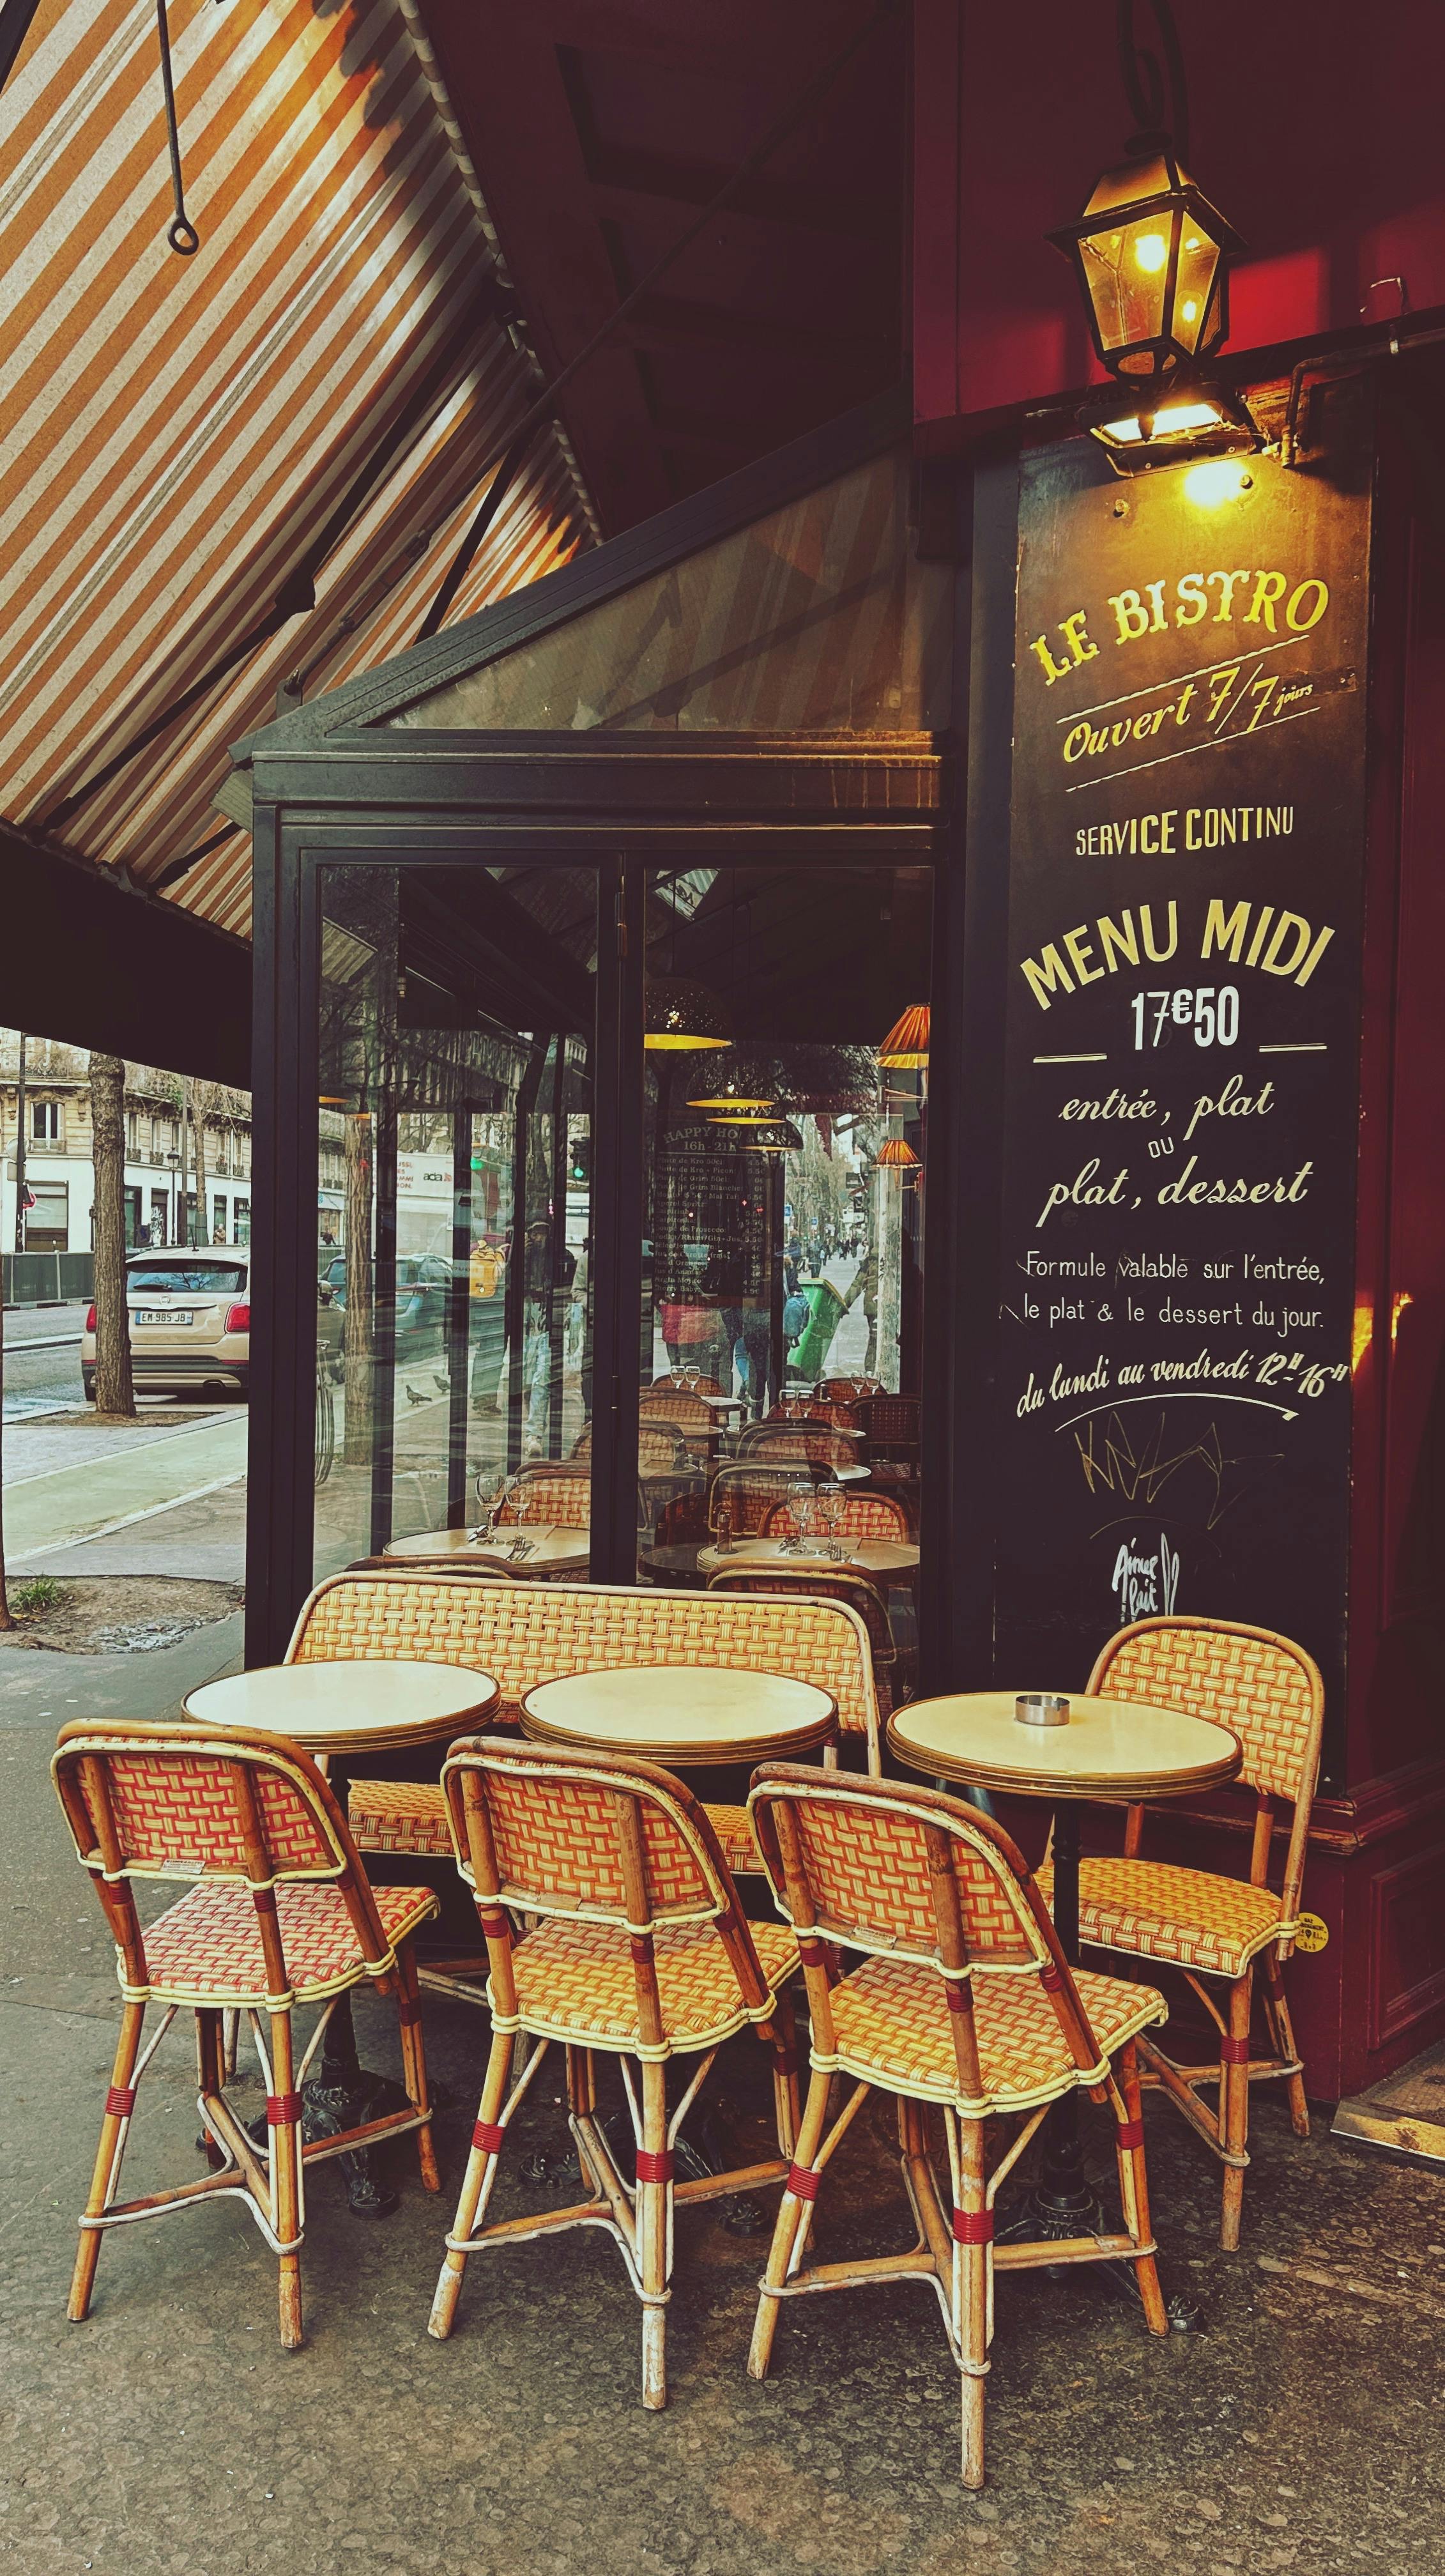 LE BISTRO
Ouvert 7/7 jours
SERVICE CONTINU
MENU MIDI
17€50
entrée, plat
ou
plat, dessert
Formule valable sur l'entrée,
le plat & le dessert du jour.
du lundi au vendredi 12H-16H
HAPPY HO
16h - 21h
EM 985 JB